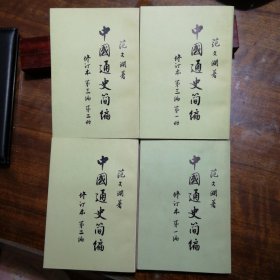 范文澜著
中國通史简编
修订本 第三编 第二册
范文澜著
中國通史简编
修订本 第三编 第一册
范文澜著
中國通史简编
修订本 第二编
范文澜著
中國通史简编
修订本 第一编